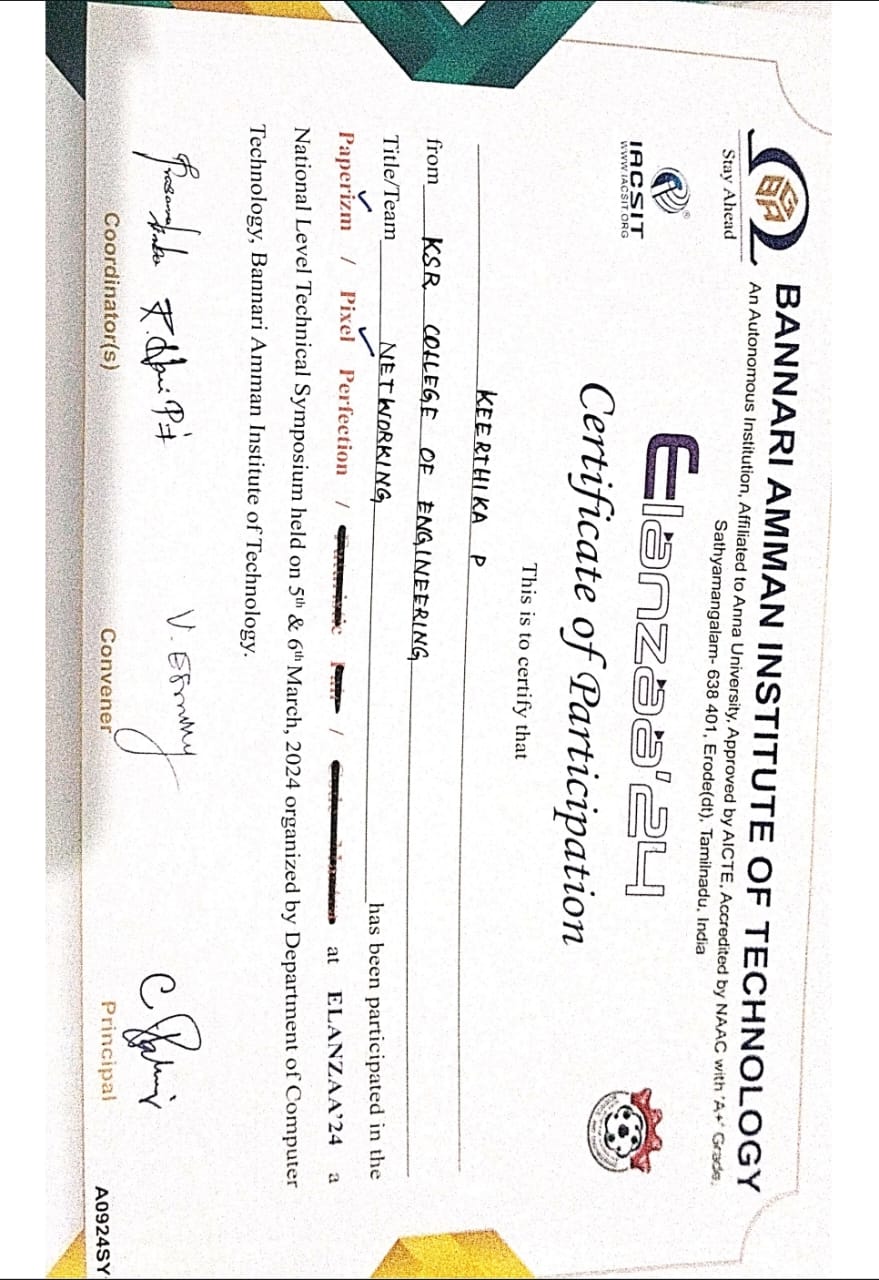 BANNARI AMMAN INSTITUTE OF TECHNOLOGY
An Autonomous Institution, Affiliated to Anna University, Approved by AICTE, Accredited by NAAC with 'A+' Grade.
Sathyamangalam- 638 401, Erode(dt), Tamilnadu, India
GBA
Stay Ahead
IACSIT
WWW.IACSIT.ORG
Elanzaa'24
Certificate of Participation
This is to certify that
KEERTHIKA P
from KSR COLLEGE OF ENGINEERING
Title/Team NETWORKING has been participated in the
Paperizm / Pixel Perfection / Futuristic Fair / Code Master at ELANZAA'24 a
National Level Technical Symposium held on 5th & 6th March, 2024 organized by Department of Computer
Technology, Bannari Amman Institute of Technology.
Coordinator(s)
Convener
Principal
A0924SY